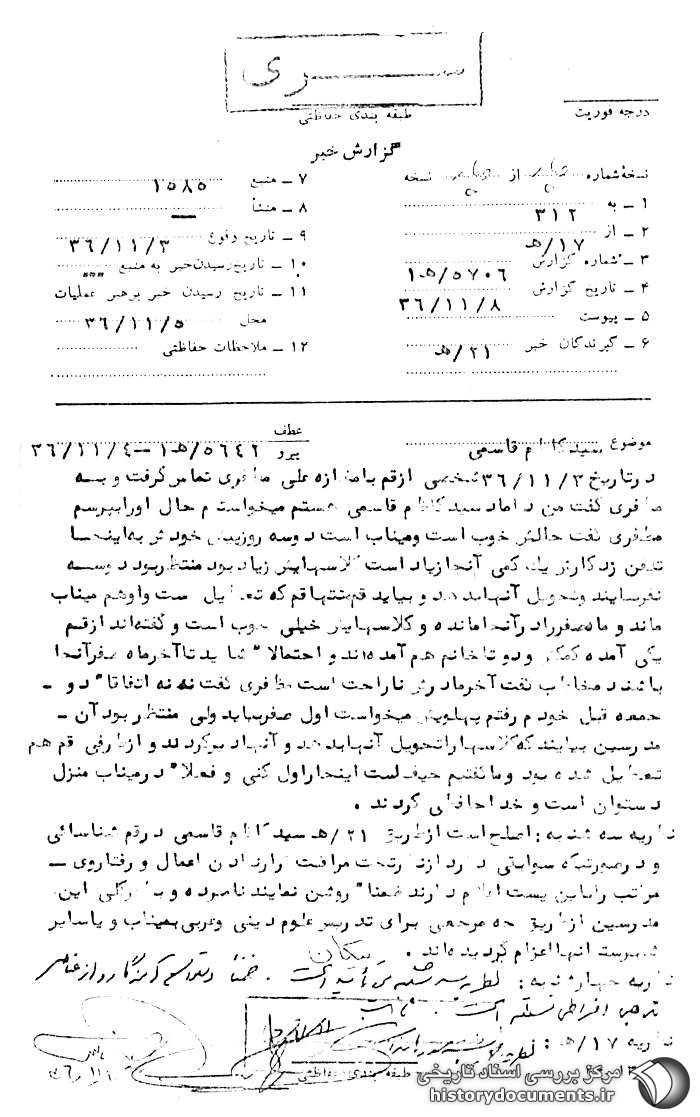 سری
طبقه بندی حفاظتی
درجه فوریت
گزارش خبر
نسخهٔ شماره از نسخه
۱ ـ به ۳۱۲
۲ ـ از ۱۷/ﻫ
۳ ـ شماره گزارش ۵۷۰۶/ﻫ۱
۴ ـ تاریخ گزارش ۳۶/۱۱/۸
۵ ـ پیوست
۶ ـ گیرندگان خبر ۲۱/ﻫ
۷ ـ منبع ۱۵۸۵
۸ ـ منشأ —
۹ ـ تاریخ وقوع ۳۶/۱۱/۳
۱۰ ـ تاریخ رسیدن خبر به منبع ""
۱۱ ـ تاریخ رسیدن خبر برهبر عملیات
محل ۳۶/۱۱/۵
۱۲ ـ ملاحظات حفاظتی
موضوع سیدکاظم قاسمی
عطف
پیرو ۵۶۴۶/ﻫ۱ ــ ۳۶/۱۱/۴
درتاریخ ۳۶/۱۱/۳ شخصی ازقم بامغازه علی مظفری تماس گرفت و به
مظفری گفت من داماد سیدکاظم قاسمی هستم میخواستم حال اورابپرسم
مظفری گفت حالش خوب است ومیناب است دوسه روزپیش خودش به اینجا
تلفن زد کارش یک کمی آنجا زیاد است کلاسهایش زیاد بود منتظربود دوسه
نفربیایند وتحویل آنهابدهد و بیاید قم منتهاقم که تعطیل است واوهم میناب
ماند و ماه صفرراد رآنجا مانده و کلاسهایش خیلی خوب است و گفته‌اند ازقم
یکی آمده کمکش و دو تا خانم هم آمده‌اند و احتمالا" شاید تا آخرماه صفرآنجا
باشند مخاطب گفت آخرمادرش ناراحت است مظفری گفت نه نه اتفاقا" دو ـ
جمعه قبل خودم رفتم پهلویش میخواست اول صفربیاید ولی منتظر بود آن ـ
مدرسین بیایند که کلاسهاراتحویل آنهابدهد و آنها دیرکردند و ازطرفی قم هم
تعطیل شده بود و ماگفتیم حیف است اینجا راول کنی و فعلا" درمیناب منزل
دستوان است و خداحافظی کردند .
نظریه سه شنبه : اصلح است ازطریق ۲۱/ﻫ سیدکاظم قاسمی درقم شناسائی
و درصورتیکه سوابقی دارد ازنظرتحت مراقبت قراردادن اعمال و رفتاروی ــ
مراتب راباین بست اعلام دارند ضمنا" روشن نمایند نامبرده و بطورکلی این
مدرسین ازطریق چه مرجعی برای تدریس علوم دینی وعربی بمیناب و یاسایر
شهرستانها اعزام گردیده‌اند . پیکان
نظریه چهارشنبه : نظریه سه شنبه مورد تأیید است . ضمناً
مذهبی افراطی
نظریه ۱۷/ﻫ :
طبقه بندی حفاظتی
مرکز بررسی اسناد تاریخی
historydocuments.ir